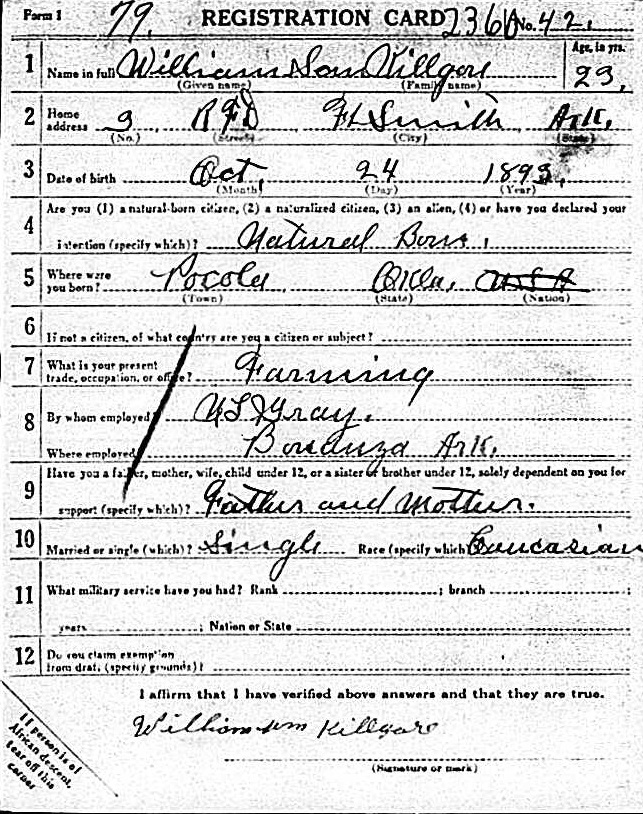 Form 1 79. REGISTRATION CARD 2360 No. 42.
1 Name in full William Sam Killgore Age, in yrs. 23
(Given name) (Family name)
2 Home address 3 RFD Ft Smith, Ark.
(No.) (Street) (City) (State)
3 Date of birth Oct. 24 1893.
(Month) (Day) (Year)
4 Are you (1) a natural-born citizen, (2) a naturalized citizen, (3) an alien, (4) or have you declared your
intention (specify which)? Natural Born.
5 Where were you born? Pocola Okla. USA
(Town) (State) (Nation)
6 If not a citizen, of what country are you a citizen or subject?
7 What is your present trade, occupation, or office? Farming
8 By whom employed? Gray.
Where employed Bonanza Ark.
9 Have you a father, mother, wife, child under 12, or a sister or brother under 12, solely dependent on you for
support (specify which)? Father and Mother.
10 Married or single (which)? Single Race (specify which) Caucasian
11 What military service have you had? Rank ; branch ;
years ; Nation or State
12 Do you claim exemption from draft, (specify grounds)?
I affirm that I have verified above answers and that they are true.
William Killgore
(Signature or mark)
If person is of
African descent,
tear off this
corner